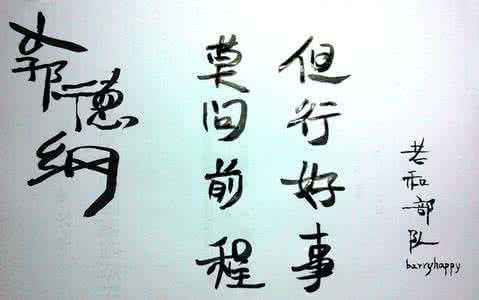 但行好事
莫问前程
郭德纲
老和部队
barryhappy